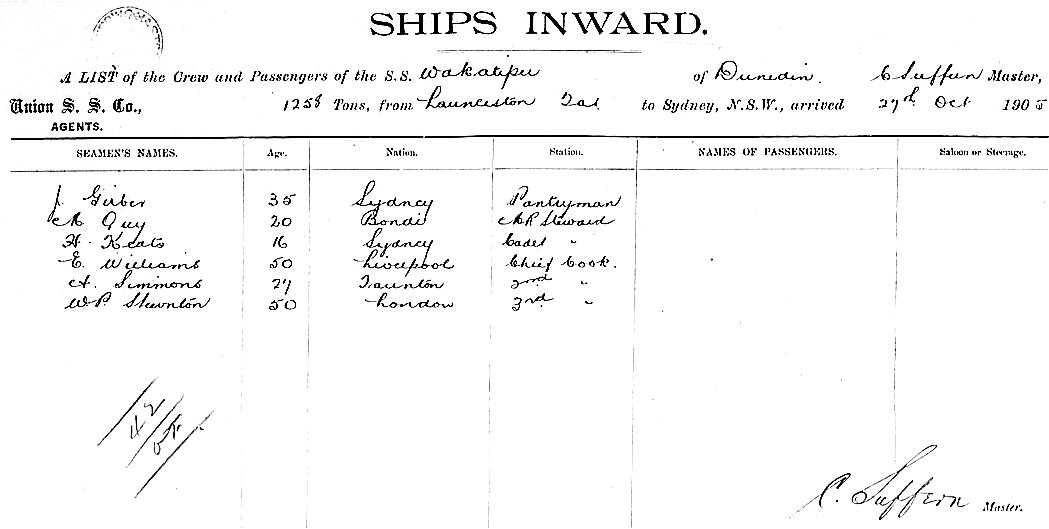 SHIPS INWARD.
A LIST of the Crew and Passengers of the S.S. Wakatipu of Dunedin. C Suffern Master,
Union S. S. Co., 1258 Tons, from Launceston Tas to Sydney, N.S.W., arrived 27th Oct 1905
AGENTS.
SEAMEN'S NAMES. Age. Nation. Station. NAMES OF PASSENGERS. Saloon or Steerage.
J. Gerber 35 Sydney Pantryman
A Guy 20 Bondi Steward
H. Keats 16 Sydney Cadet "
E. Williams 50 Liverpool Chief Cook.
A. Simmons 27 Taunton 2nd "
W P. Staunton 50 London 3rd "
42
C. Suffern Master.